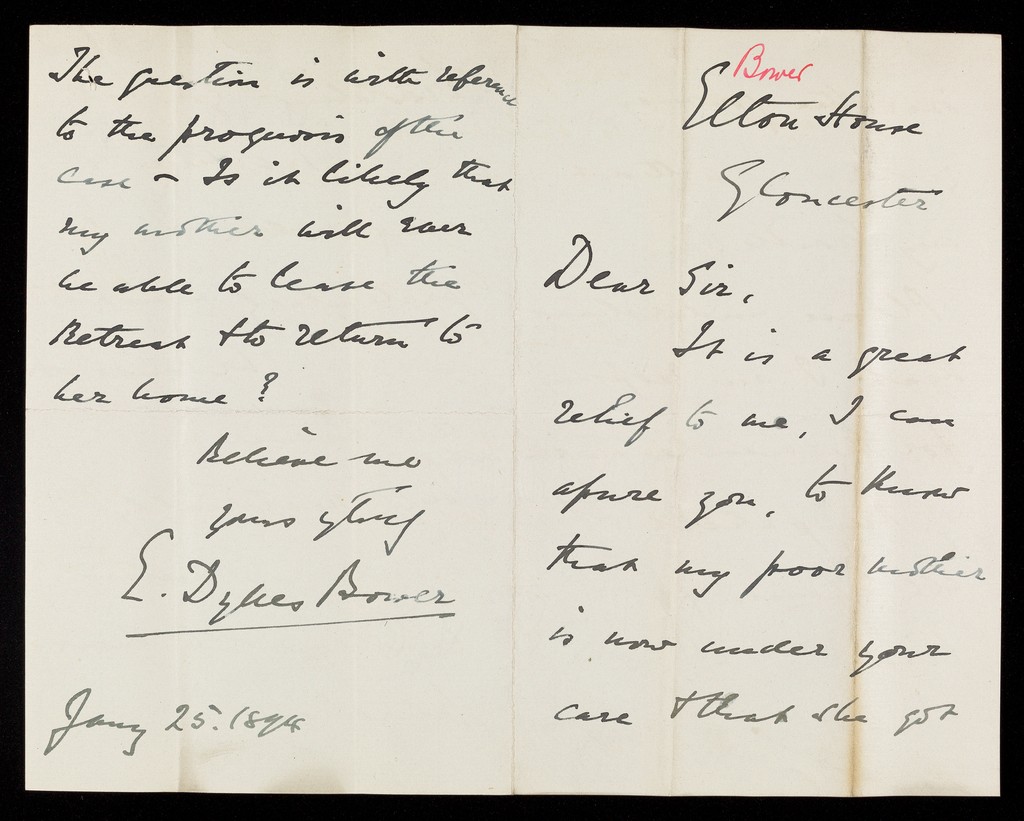 Bower
Elton House
Gloucester
Dear Sir,
It is a great
relief to me, I can
assure you, to know
that my poor mother
is now under your
care & that she got
The question is with reference
to the prognosis of the
case - Is it likely that
my mother will ever
be able to leave the
Retreat & to return to
her home?
Believe me
yours
E. Dykes Bower
Jany 25. 1894